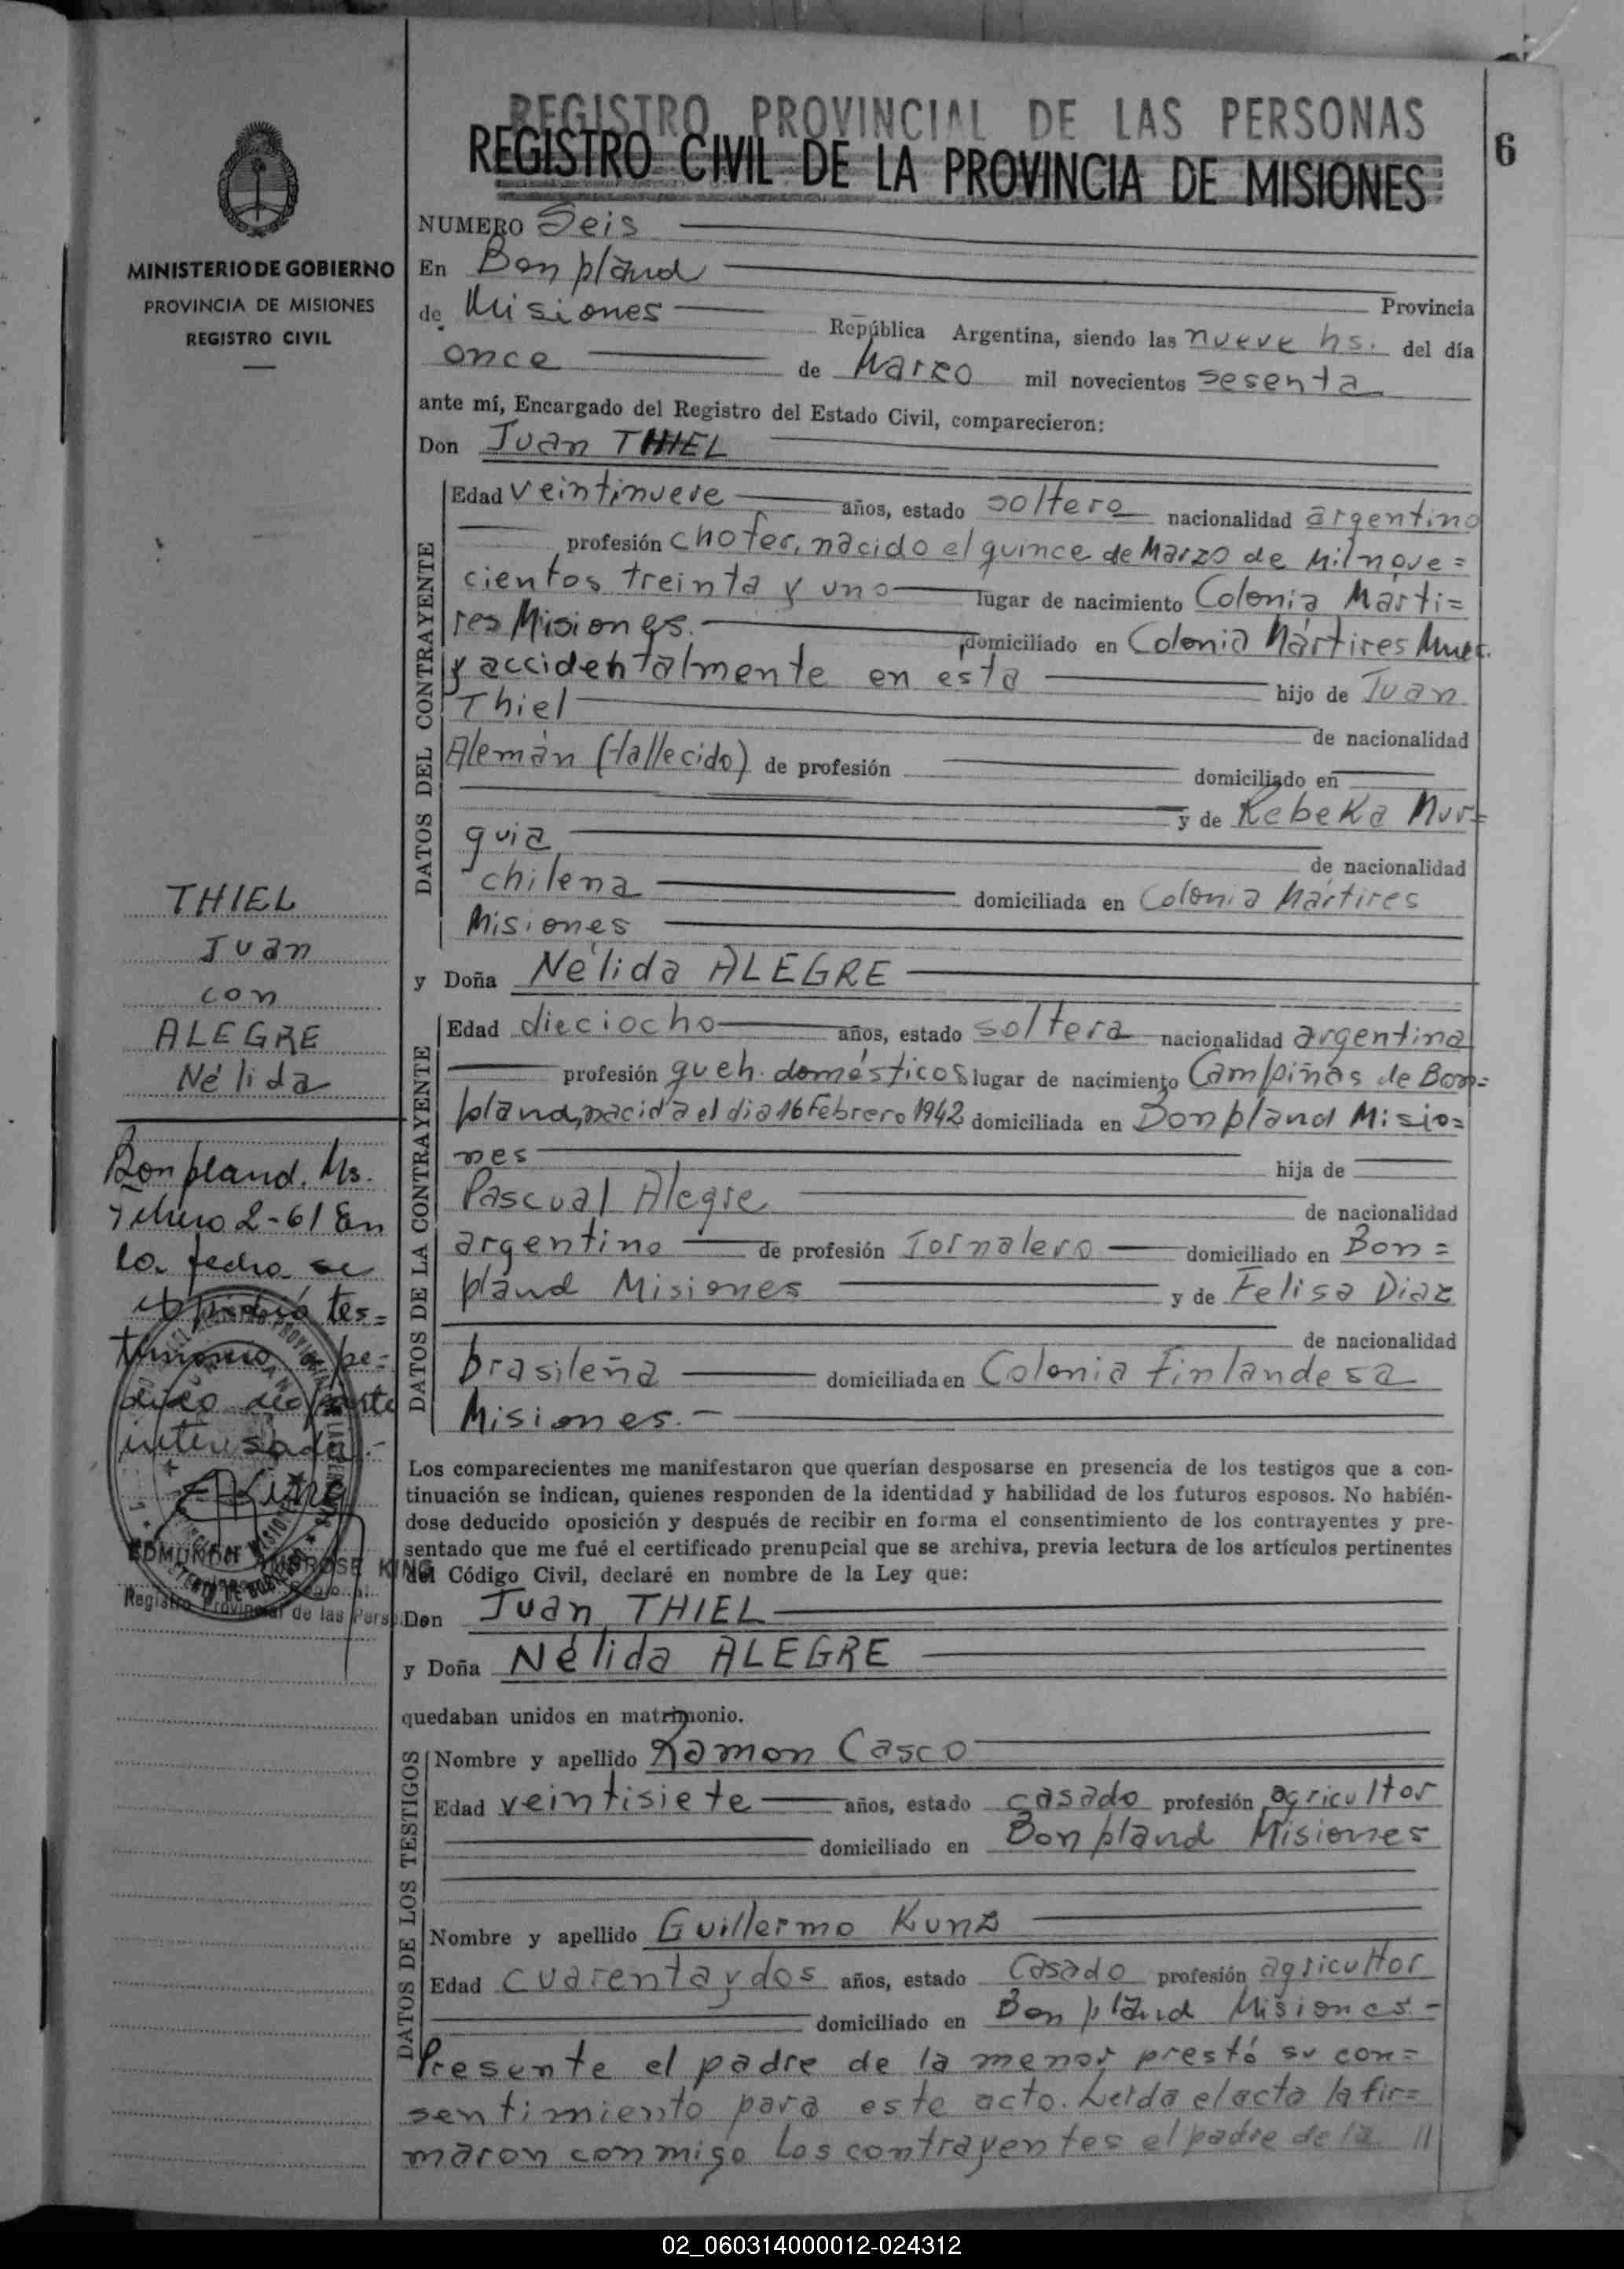 REGISTRO PROVINCIAL DE LAS PERSONAS
REGISTRO CIVIL DE LA PROVINCIA DE MISIONES
6
MINISTERIO DE GOBIERNO
PROVINCIA DE MISIONES
REGISTRO CIVIL
NUMERO Seis
En Bonpland
Provincia
de Misiones República Argentina, siendo las nueve hs. del día
once de Marzo mil novecientos sesenta
ante mí, Encargado del Registro del Estado Civil, comparecieron:
Don Juan THIEL
DATOS DEL CONTRAYENTE
Edad veintinueve años, estado soltero nacionalidad argentino
profesión chofer, nacido el quince de Marzo de Mil nove=
cientos treinta y uno lugar de nacimiento Colonia Márti=
res Misiones. domiciliado en Colonia Mártires
y accidentalmente en esta hijo de Juan
Thiel
de nacionalidad
Alemán (fallecido) de profesión domiciliado en
y de Rebeka Mur=
guia
de nacionalidad
chilena domiciliada en Colonia Mártires
Misiones
y Doña Nélida ALEGRE
DATOS DE LA CONTRAYENTE
Edad dieciocho años, estado soltera nacionalidad argentina
profesión queh. domésticos lugar de nacimiento Campiñas de Bon=
pland, nacida el dia 16 Febrero 1942 domiciliada en Bonpland Misio=
nes hija de
Pascual Alegre
de nacionalidad
argentino de profesión Jornalero domiciliado en Bon=
pland Misiones y de Felisa Diaz
de nacionalidad
brasileña domiciliada en Colonia Finlandesa
Misiones.-
THIEL
Juan
con
ALEGRE
Nélida
Bonpland. Ms.
Febrero 2-61 En
la fecha se
expidió tes=
timonio a pe=
dido de parte
interesada.-
EDMUNDO AMBROSE KING
Registro Provincial de las Pers
Los comparecientes me manifestaron que querían desposarse en presencia de los testigos que a con-
tinuación se indican, quienes responden de la identidad y habilidad de los futuros esposos. No habién-
dose deducido oposición y después de recibir en forma el consentimiento de los contrayentes y pre-
sentado que me fué el certificado prenupcial que se archiva, previa lectura de los artículos pertinentes
del Código Civil, declaré en nombre de la Ley que:
Don Juan THIEL
y Doña Nélida ALEGRE
quedaban unidos en matrimonio.
DATOS DE LOS TESTIGOS
Nombre y apellido Ramon Casco
Edad veintisiete años, estado casado profesión agricultor
domiciliado en Bonpland Misiones
Nombre y apellido Guillermo Kunz
Edad cuarenta y dos años, estado Casado profesión agricultor
domiciliado en Bonpland Misiones.-
Presente el padre de la menor prestó su con=
sentimiento para este acto. Leída el acta la fir=
maron conmigo los contrayentes el padre de la //
02_060314000012-024312